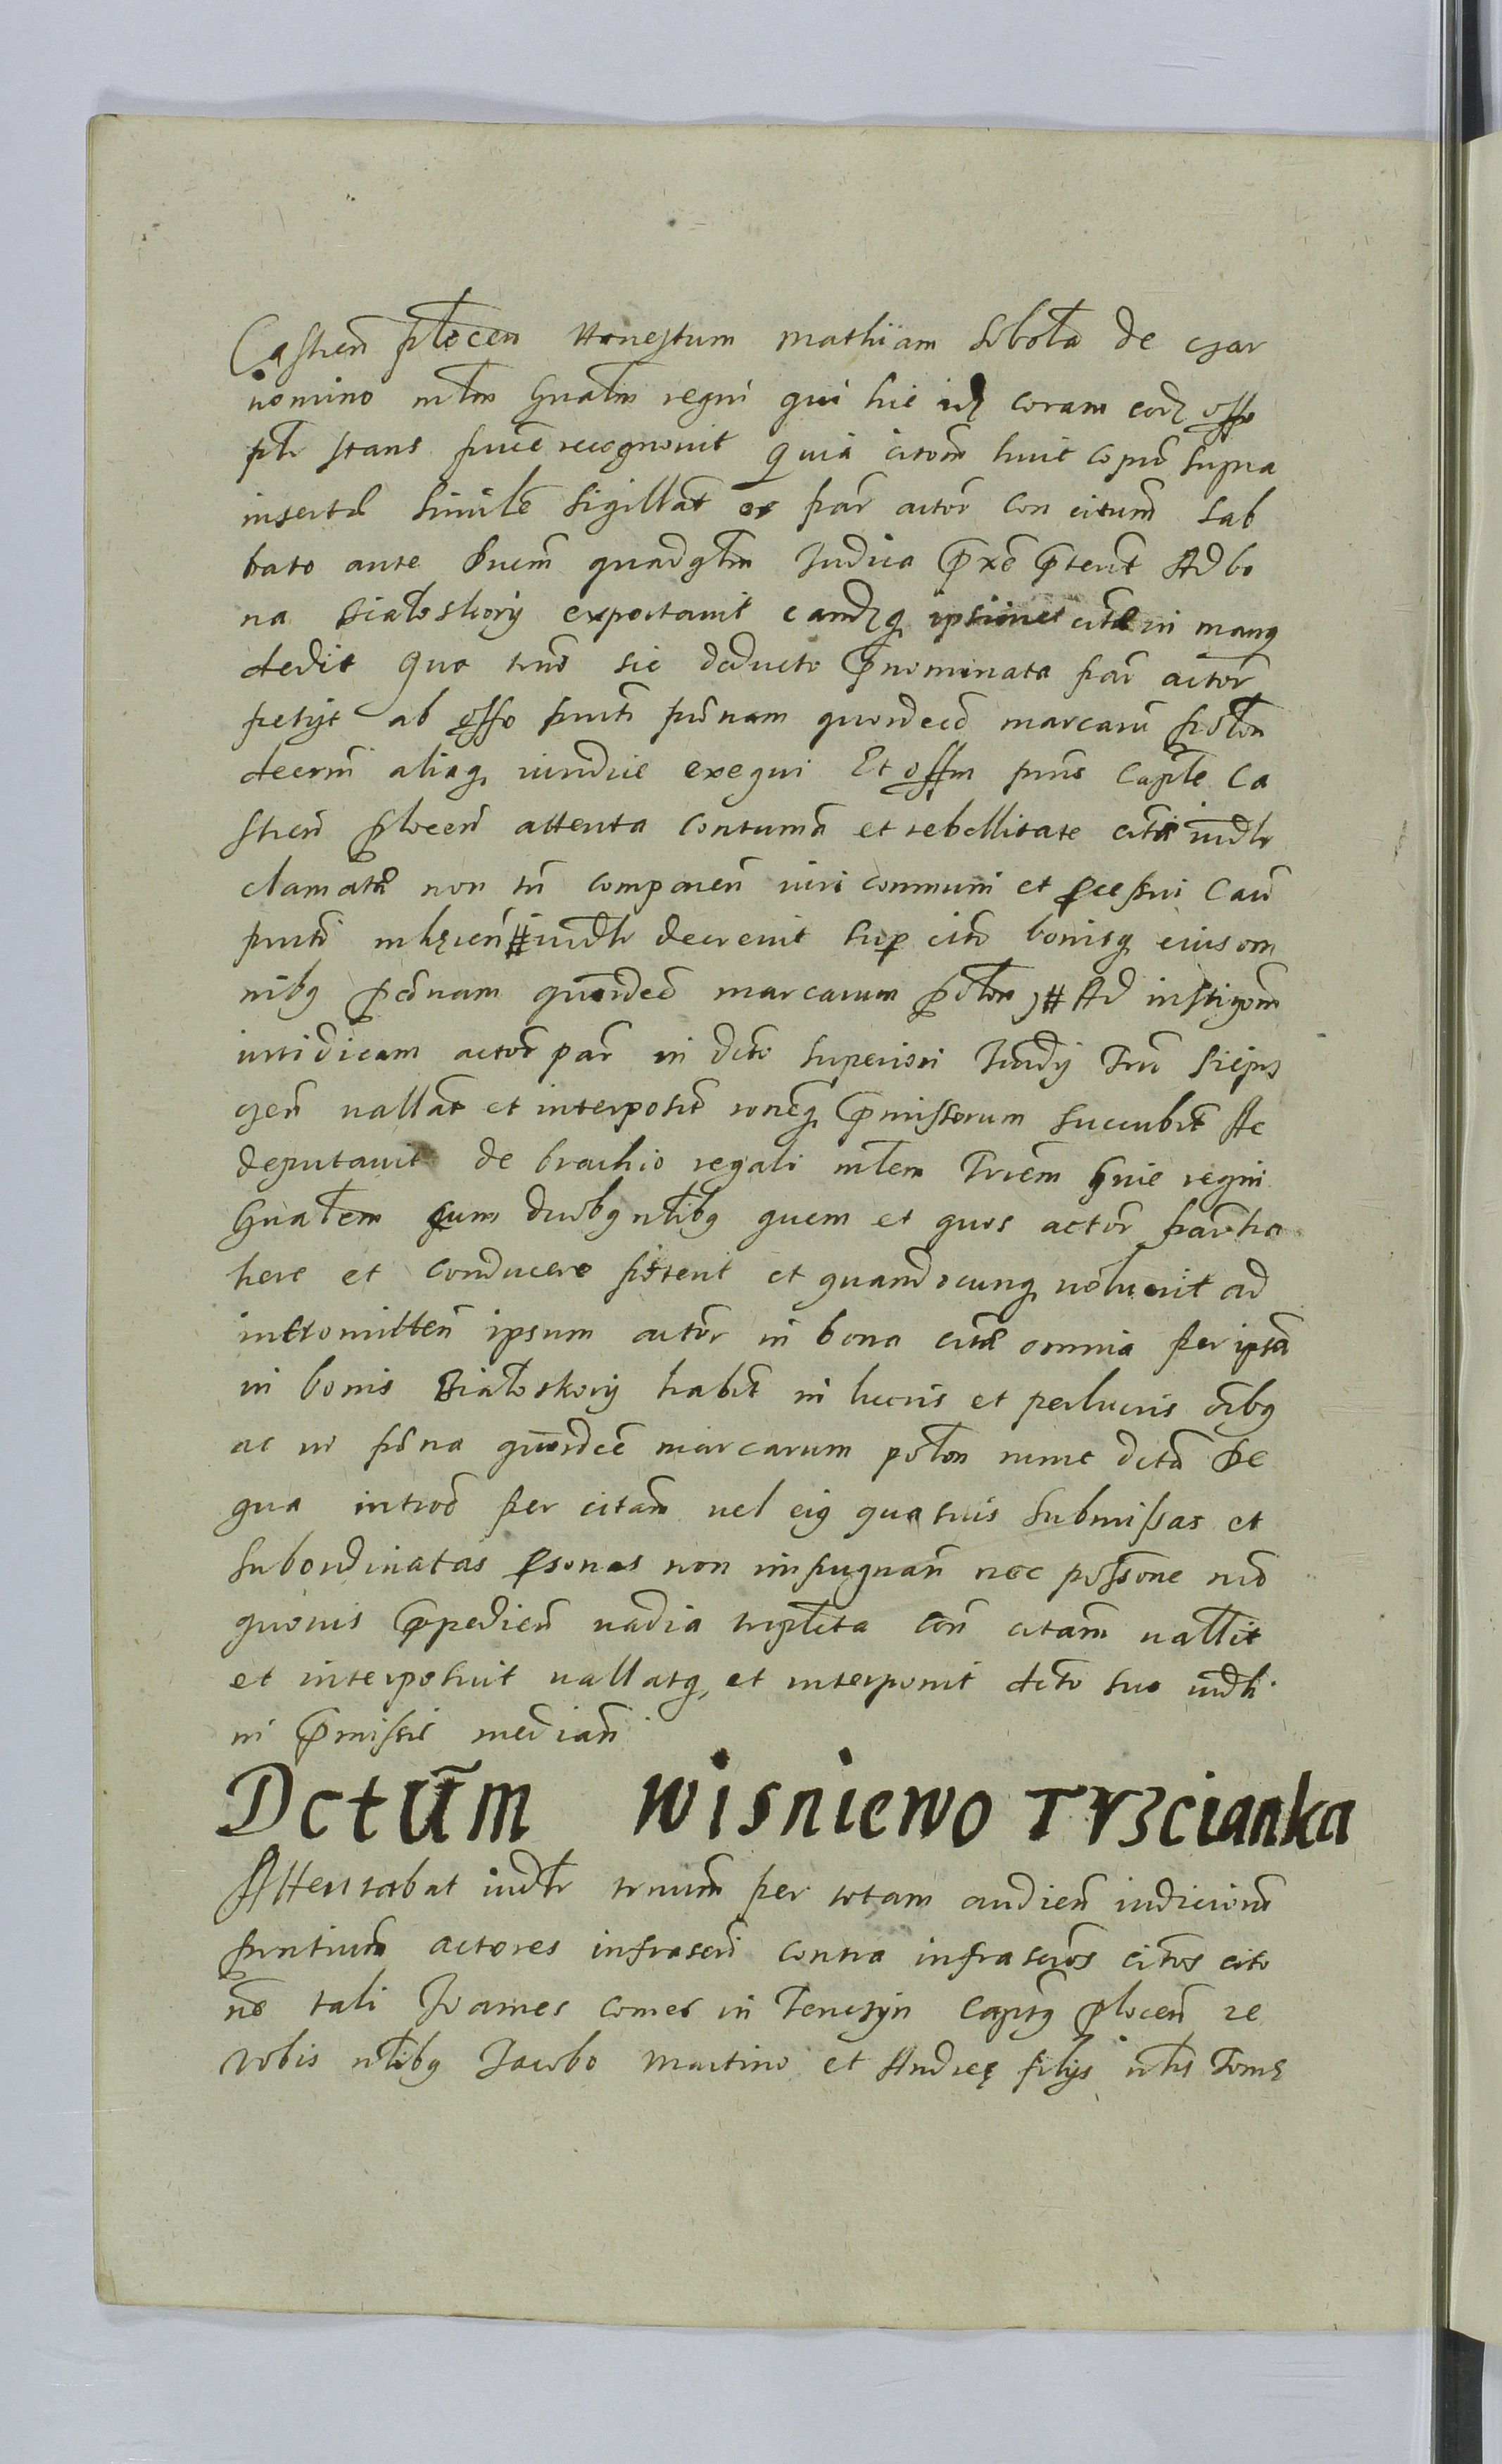 Castren̄ płocen Honestum Mathiam Sobota de czar
nomino młm Gnałm regni qui hic idz coram eodz offo
płr stans puce recognouit Quia citom̄ huic copie supra
insertæ similē sigillat̄ ex par̄ actor̄ con citum̄ sab
bato ante Dnicm̄ quadgłm Judica p̄xe p̄terit̄ Ad bo
na Białoskory exportauit eamdzq ipsimet citæ in manq
dedit Quo trno sic deducto p̄nominata par̄ actor̄
petyt ab offo pnti pœnam quordecē marcaru̅ połon
decerni aliaq iuridice exequi Et offm pnis Capłe Ca
stren̄ płocen̄ attenta contuma et rebellitate citi iudłr
clamati non tn̄ comparen̄ iuri communi et pcessui Cau̅
pnti inhęren̄ # iudłr decreuit sup cito bonisq eius om
nibq pœnam quordecē marcarum połon # Ad instigom̄
iuridicam actor̄ par̄ in dcto superiori Jurdij Trri Sieprs
cen̄ uallat̄ et interposit̄ rone̅q p̄missorum succubit̄ Ac
deputauit de brachio regali młem Trrem̄ huic regni
Gnałem cum duobq nłibq quem et quos actor̄ par̄ ha
here et conducere poterit et quandocunq uoluerit ad
intromitten̄ ipsum actor̄ in bona citæ omnia per ipsā
in bonis Białoskory habit̄ in lucris et perlucris oībq
ac in pœna quordecē marcarum połon nunc dictā De
qua introm̄ per citam̄ uel eiq qua suis submissas et
subordinatas psonas non impugnan̄ nec possone mō
quouis p̄pedien̄ uadia tripłita con̄ citam̄ uallit̄
et interposuit uallatq, et interponit dcto suo iudłi
in p̄missis median̄
Dctūm Wisniewo Trzcianka
Attentabat iudłr trnum̄ per totam audien̄ iudicioru̅
pntium̄ actores infrascri̅ contra infrascros citos cito
ne tali Joannes comes in Tenczyn Capitq płocen̄ ze
Vobis nłibq Jacobo Martino et Andreę filijs nłis Tomę